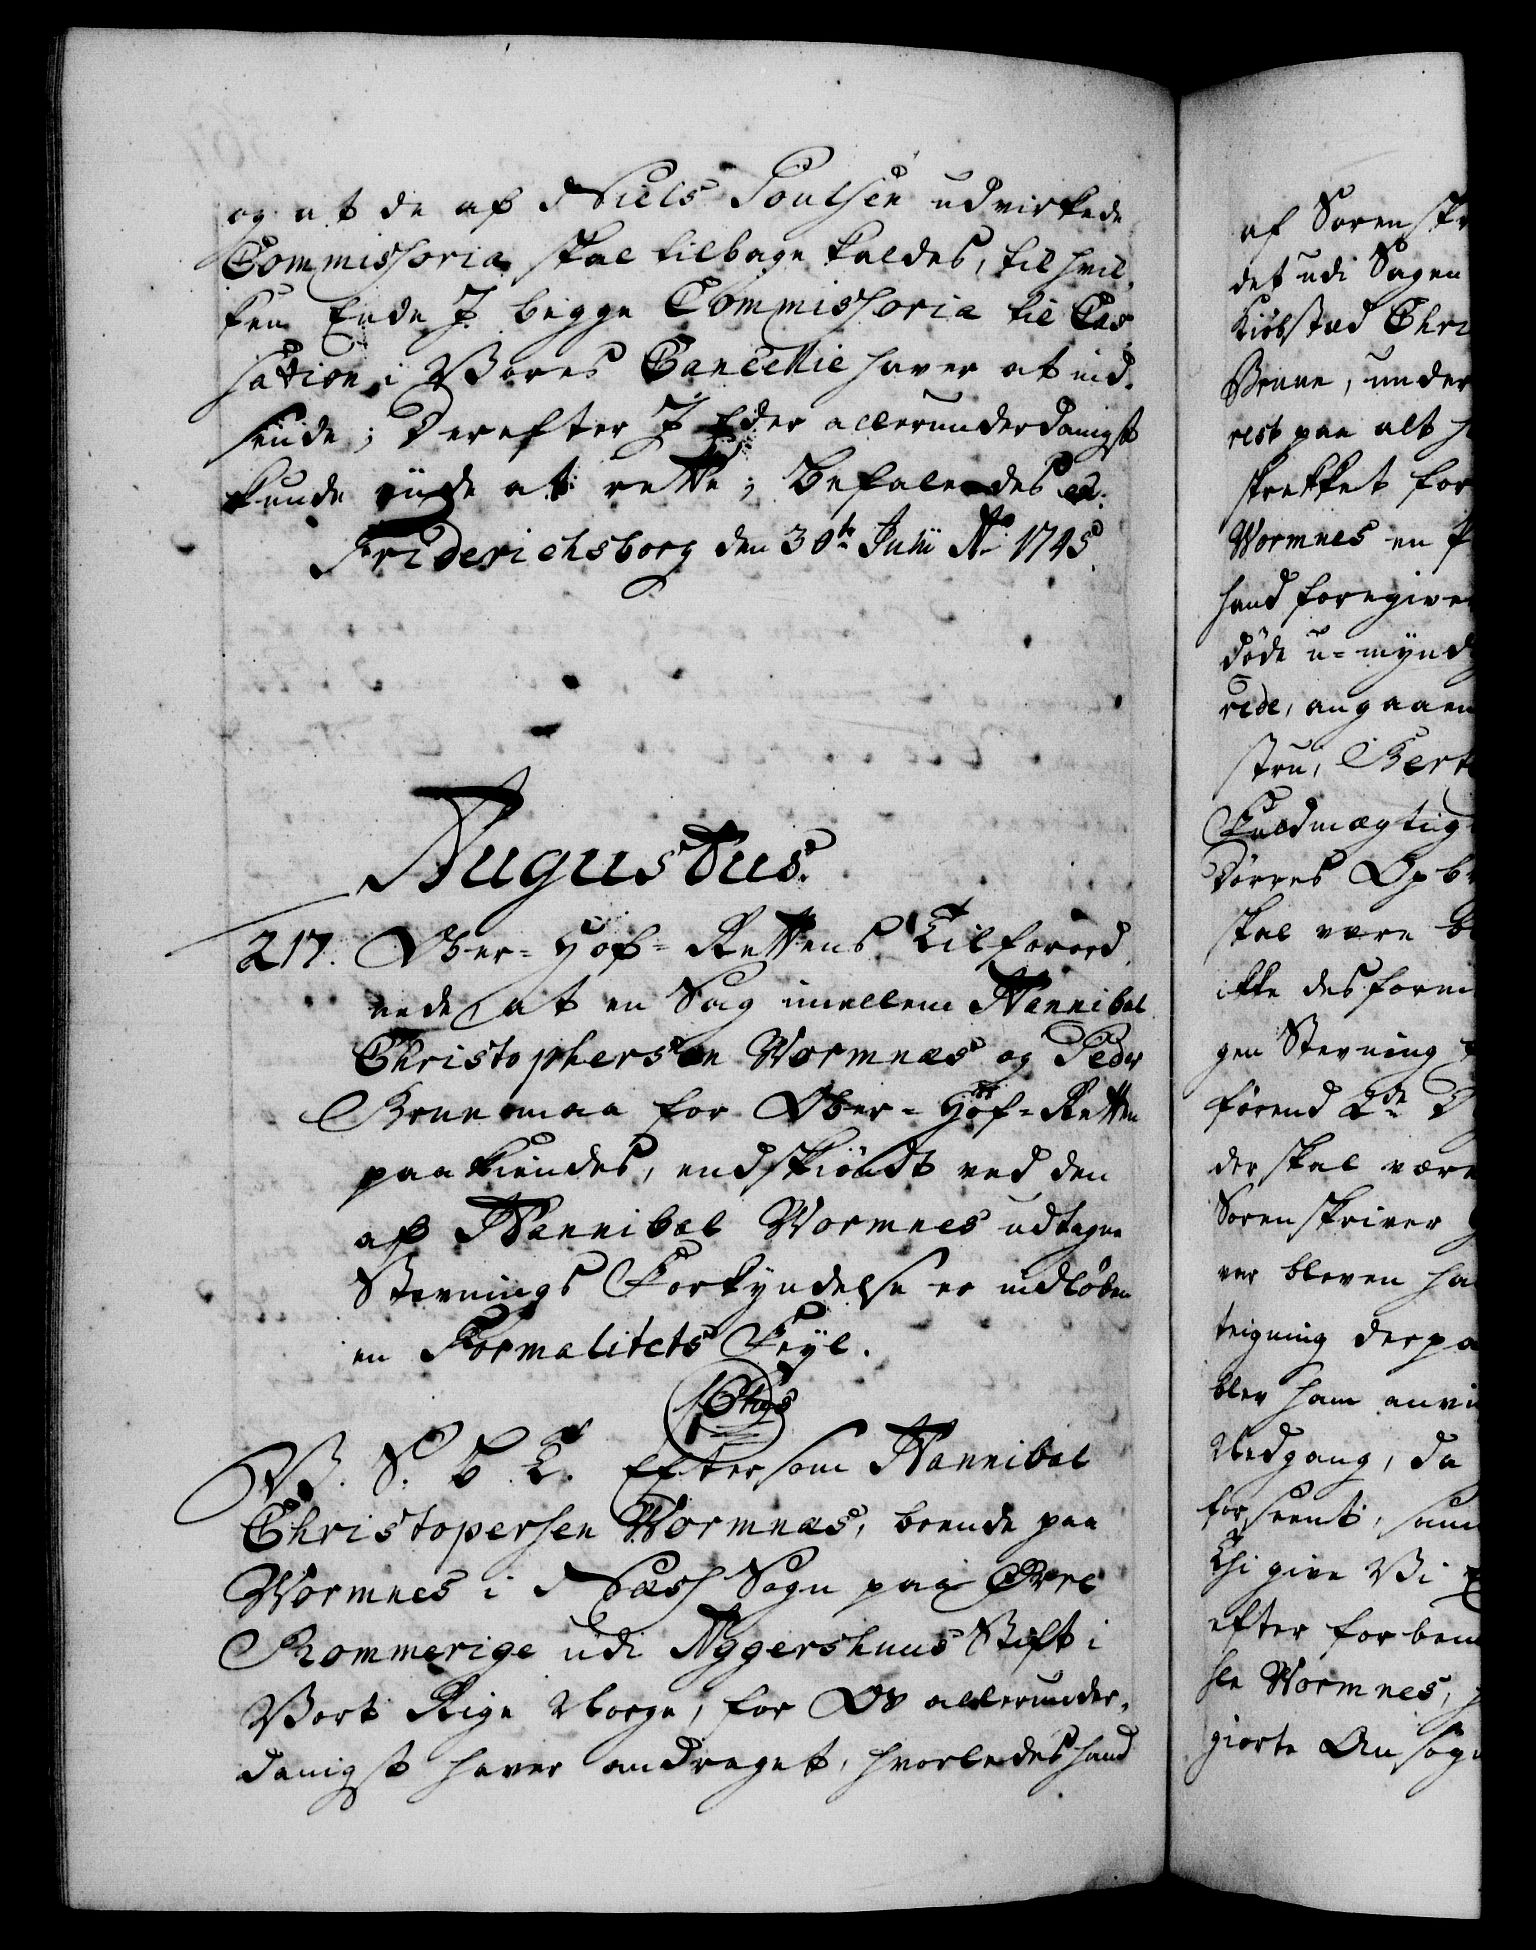 og at de af Niels Poulsen udvirkede
Commissoria skal tilbage kaldes, til hvil-
ken Ende I begge Commissoria til Cas-
sation i Vores Cancellie haver at ind-
sende; Derefter I Eder allerunderdanigst
kunde vide at rette; Befalendes etc.
Friderichsborg den 30te Julii Ao 1745.
Augustus.
217. Ober-Hof-Rettens Tilforord-
nede, at en Sag imellem Hannibal
Christophersen Wormnæs og Peder
Brunemaa for Ober-Hof-Retten
paakiendes, endskiøndt ved den
af Hannibal Wormnes udtagne
Stevnings Forkyndelse er indløben
en Formalitets Feyl.
V. S. B. T. Eftersom Hannibal
Christopersen Wormnæs, boende paa
Wormnes i Næss Sogn paa Øvre
Rommerige udi Aggershuus Stift i
Vort Rige Norge, for Os allerunder-
danigst haver andraget, hvorledes hand
af Sorenskr
det udi Sagen
Kiøbstæd Chri
Brune, under
rest paa alt h
strekket for
Wormnes en
hand foregive
døde u-mynd
rede, angaaen
stru,
Fuldmægtig
Dørres Opb
skal være
ikke desform
gen Stevning
førend 2de
der skal være
Sorenskriver
var bleven ha
teigning derpa
blev ham anvi
Nedgang, da
forseent, sam
Thi give Vi
efter forben
sle Wormnes,
giorte Ansøgn